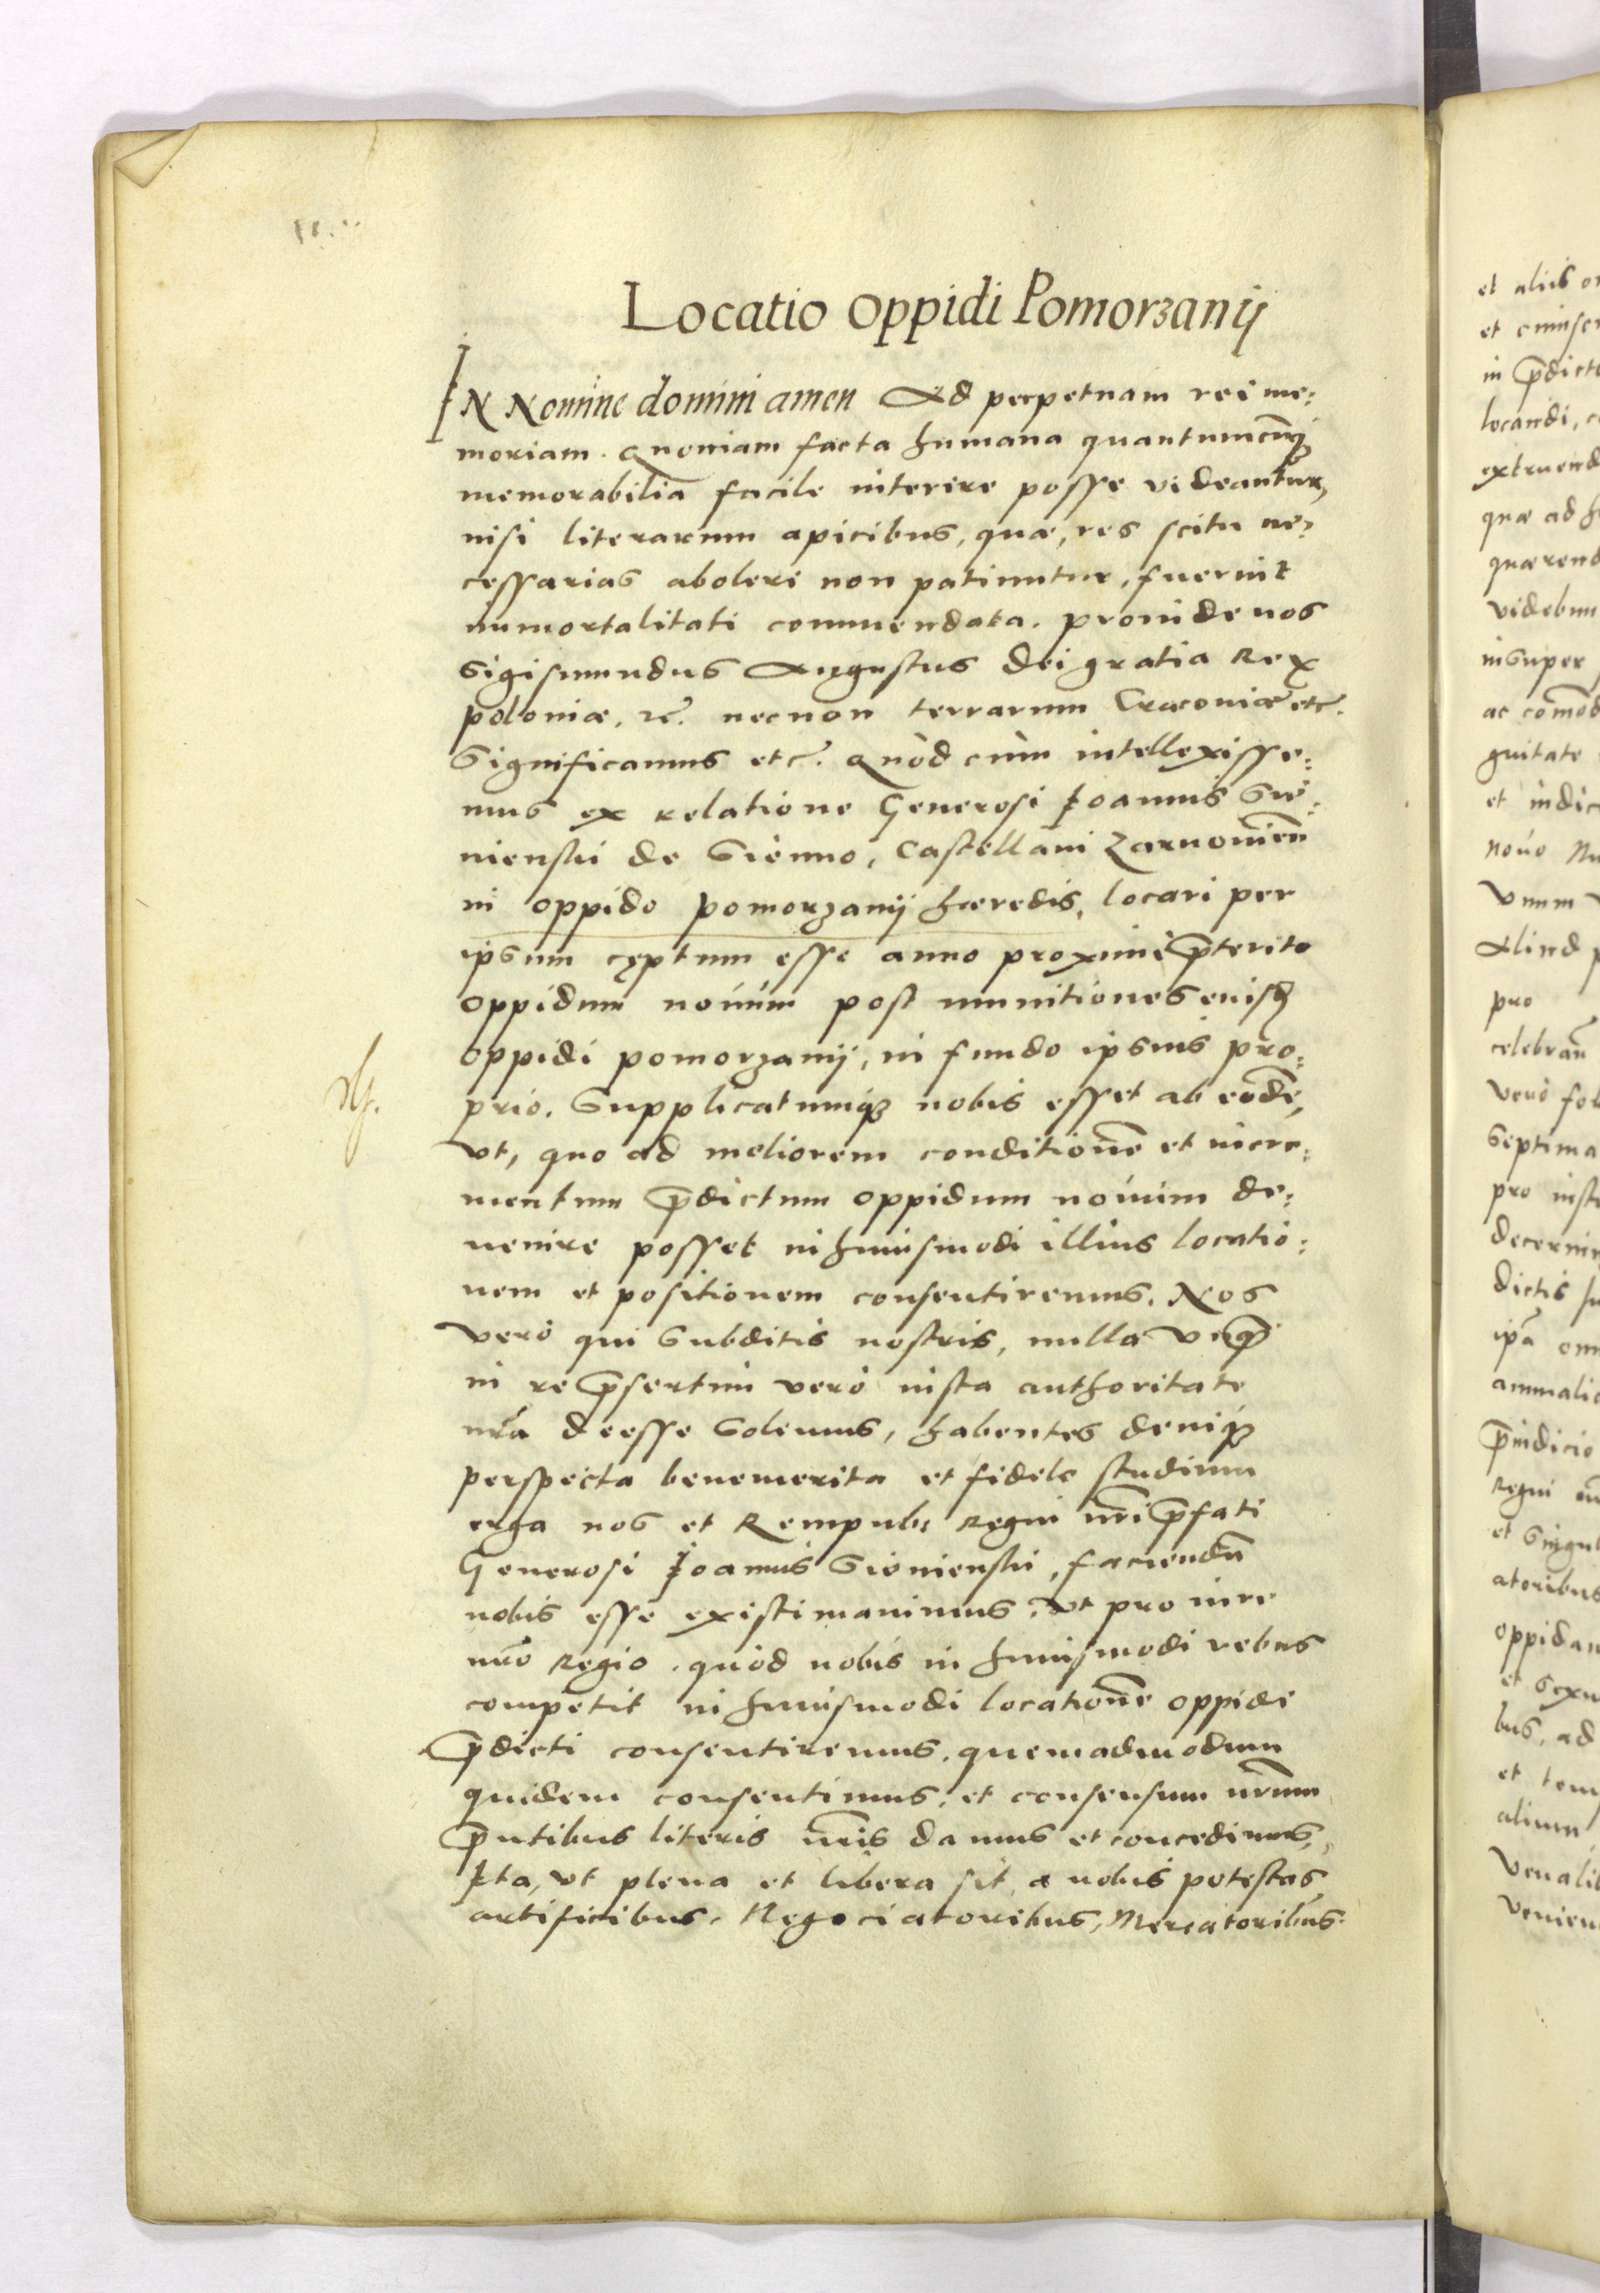 Locatio Oppidi Pomorzanij
IN Nomine domini amen Ad perpetuam rei me:
moriam. Quoniam facta humana quantumcunq́
memorabilia facile interire posse videantur,
nisi literarum apicibus, quæ, res scitu ne:
cessarias aboleri non patiuntur, fuerint
immortalitati commendata. Proinde nos
Sigismundus Augustus Dei gratia Rex
poloniæ, etc. necnon terrarum Cracoviæ etc.
Significamus etc. Quòd cùm intellexisse:
mus ex relatione Generosi Ioannis Sie:
nienskii de Sienno, Castellani Zarnovien̄
in oppido pomorzanij hæredis, locari per
ipsum cęptum esse anno proximè p̄terito
oppidum nouum post munitiones eiusd
oppidi pomorzanij, in fundo ipsius pro:
prio. Supplicatumq́ nobis esset ab eodē,
vt, quo ad meliorem conditionē et incre:
mentum p̄dictum oppidum nouum de:
uenire posset in huiusmodi illius locatio:
nem et positionem consentiremus. Nos
verò qui Subditis nostris, nulla vnq̄
in re p̄sertim verò iusta authoritate
nr̄a deesse Solemus, habentes deniq́
perspecta benemerita et fidele studium
erga nos et Rempub: Regni nr̄i p̄fati
Generosi Ioannis Sienienskii, faciendū
nobis esse existimauimus, vt pro iure
nr̄o Regio, quod nobis in huiusmodi rebus
competit in huiusmodi locationē oppidi
p̄dicti consentiremus, quemadmodum
quidem consentimus, et consensum nr̄um
p̄ntibus literis nr̄is damus et concedimus,
Ita, vt plena et libera sit a nobis potestas
artificibus, Negociatoribus, Mercatoribus
et aliis
in p̄dicto
locandi,
quæ ad
insuper
guitate
nouo
Vnum
Aliud
pro
verò
Septima
pro
dictis
et
Regni
et
oppidan
bus, ad
et
alium